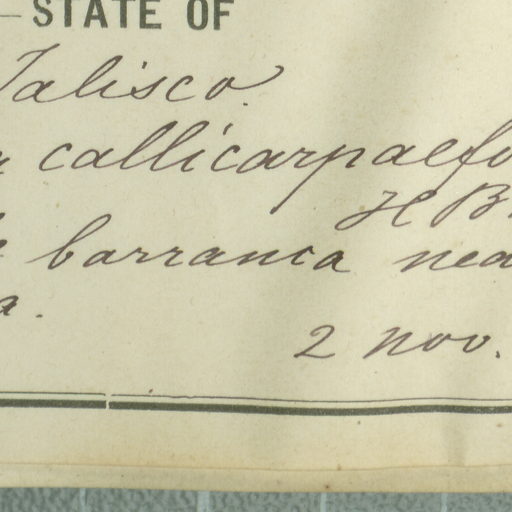 —STATE OF
Jalisco.
callicarpaefo
H B
barranca nea
a.
2 nov.